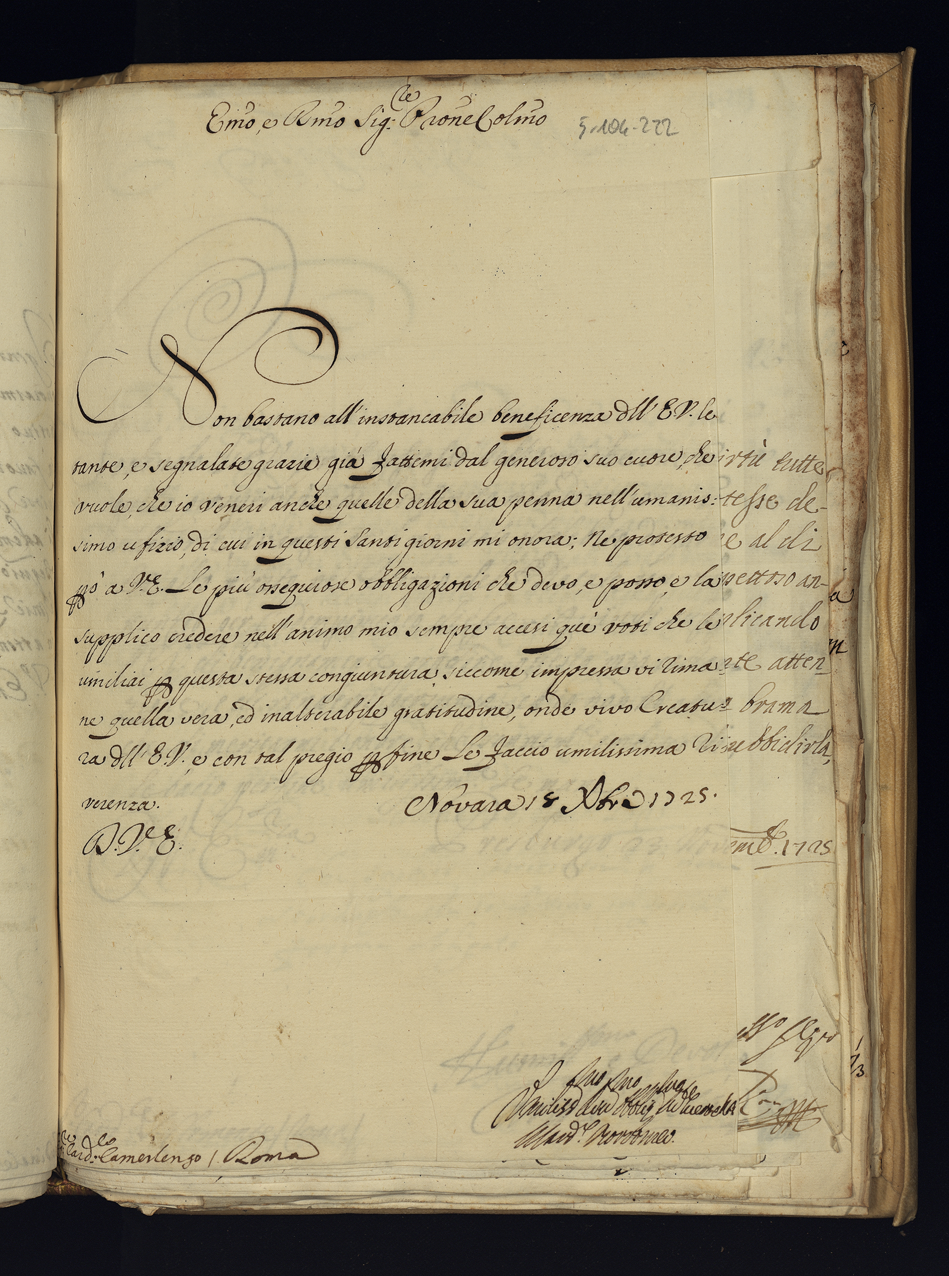 Emo, e Rmo Sig.re Prone Colmo
5-104-222
Non bastano all'instancabile beneficenza dll' E.V. le
tante, e segnalate grazie già fattemi dal generoso suo cuore, che
vuole, che io veneri anche quelle della sua penna nell'umanis-
simo ufizio, di cui in questi Santi giorni mi onora; Ne protesto
pciò a V.E. Le più ossequiose obbligazioni che devo, e posso, e la
supplico credere nell'animo mio sempre accesi que' voti che le
umiliai p questa stessa congiuntura, siccome impressa vi rima
ne quella vera, ed inalterabile gratitudine, onde vivo Creatu-
ra dll' E.V., e con tal pregio p fine Le faccio umilissima Ri
verenza.
Novara 18 Xbre 1725.
D. V.E.
irtù tutte
tesse de-
e al di
pettoso an-
plicando
te atten
brama
ubbidirla,
emb. 1725
Umiliss
Card. Borromeo
Card. Camerlengo / Roma